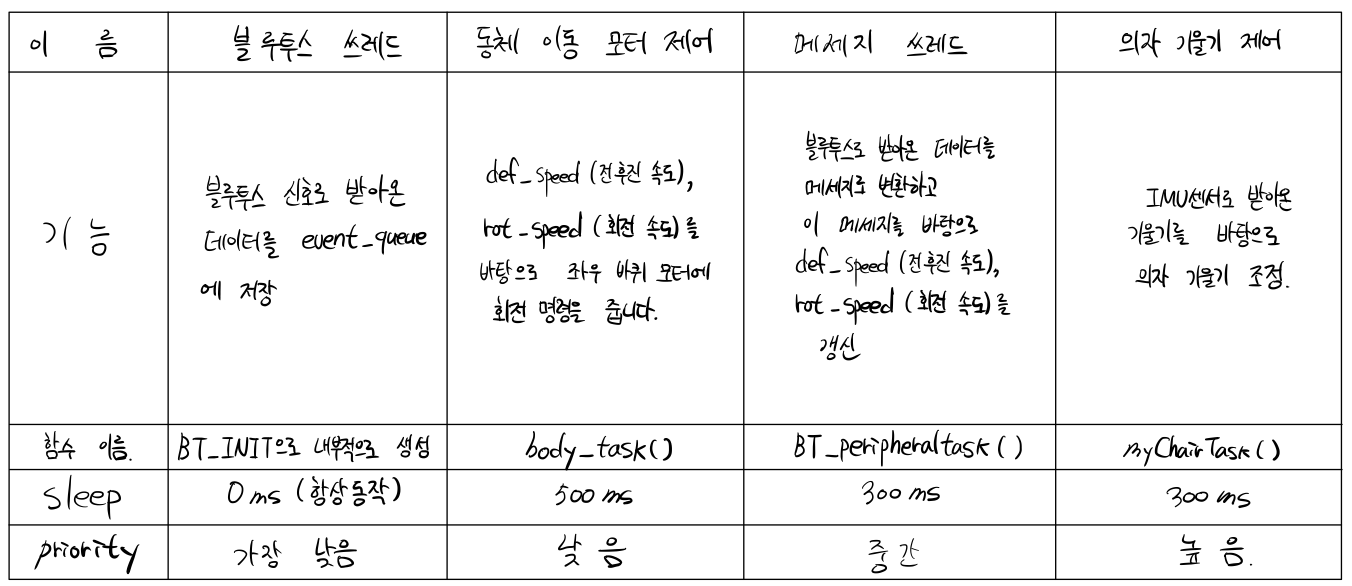 이 름 블루투스 쓰레드 동체 이동 모터 제어 메세지 쓰레드 의자 기울기 제어
기능
블루투스 신호로 받아온
데이터를 event_queue
에 저장
def_speed (전후진 속도),
rot_speed (회전 속도)를
바탕으로 좌우 바퀴 모터에
회전 명령을 줍니다.
블루투스로 받아온 데이터를
메세지로 변환하고
이 메세지를 바탕으로
def_speed (전후진 속도),
rot_speed (회전 속도)를
갱신
IMU센서로 받아온
기울기를 바탕으로
의자 기울기 조정.
함수 이름. BT_INIT으로 내부적으로 생성 body_task() BT_peripheraltask() myChairTask()
sleep 0ms (항상 동작) 500ms 300ms 300ms
priority 가장 낮음 낮음 중간 높음.